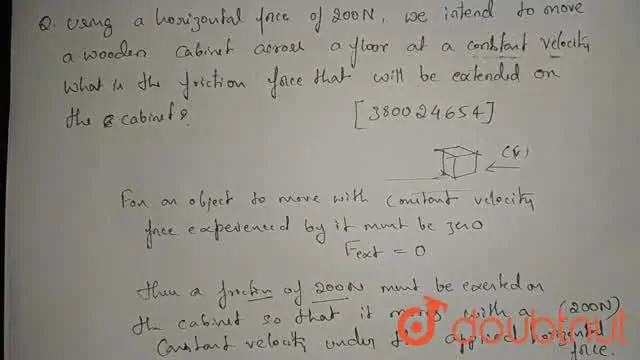 Q. Using a horizontal force of 200N, we intend to move
a wooden cabinet across a floor at a constant velocity
what is the friction force that will be extended on
the cabinet?
[380024654]
(V)
For an object to move with constant velocity
force experienced by it must be zero
Fext = 0
then a friction of 200N must be exerted on
the cabinet so that it moves with a (200N)
constant velocity under the applied horizontal
force.
doubtnut